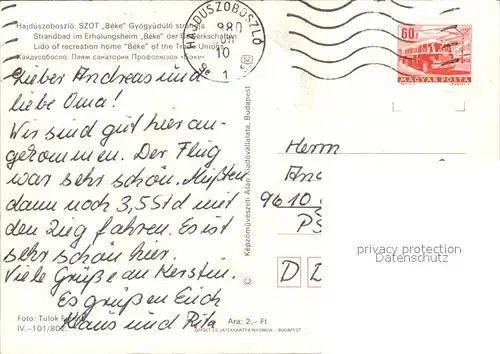 Hajdúszoboszló. SZOT „Béke" Gyógyüdülő strandja
Strandbad im Erholungsheim „Béke" der Gewerkschaften
Lido of recreation home "Béke" of the Trade Unions
Хайдусобосло. Пляж санатория Профсоюзов «Бэке»
HAJDÚSZOBOSZLÓ
980
10
1
60f
MAGYAR POSTA
Lieber Andreas und
liebe Oma!
Wir sind gut hier an-
gekommen. Der Flug
war sehr schön. Mußten
dann noch 3,5 Std mit
den Zug fahren. Es ist
sehr schön hier.
Viele Grüße an Kerstin.
Es grüßen Euch
Klaus und Rita
Képzőművészeti Alap Kiadóvállalata, Budapest
Herrn
9610
privacy protection
akpool.co.uk
D
Foto: Tulok
IV.–101/802
Ára: 2,– Ft
OFFSET ÉS JÁTÉKKÁRTYA NYOMDA – BUDAPEST